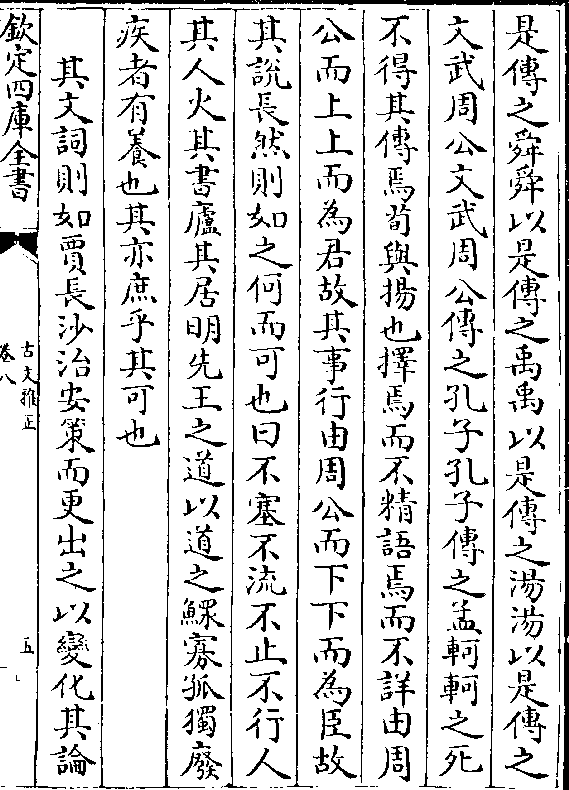 是傳之舜舜以是傳之禹禹以是傳之湯湯以是傳之
文武周公文武周公傳之孔子孔子傳之孟軻軻之死
不得其傳焉荀與揚也擇焉而不精語焉而不詳由周
公而上上而為君故其事行由周公而下下而為臣故
其說長然則如之何而可也曰不塞不流不止不行人
其人火其書廬其居明先王之道以道之鰥寡孤獨廢
疾者有養也其亦庶乎其可也
其文詞則如賈長沙治安策而更出之以變化其論
欽定四庫全書
古文雅正
卷八
五